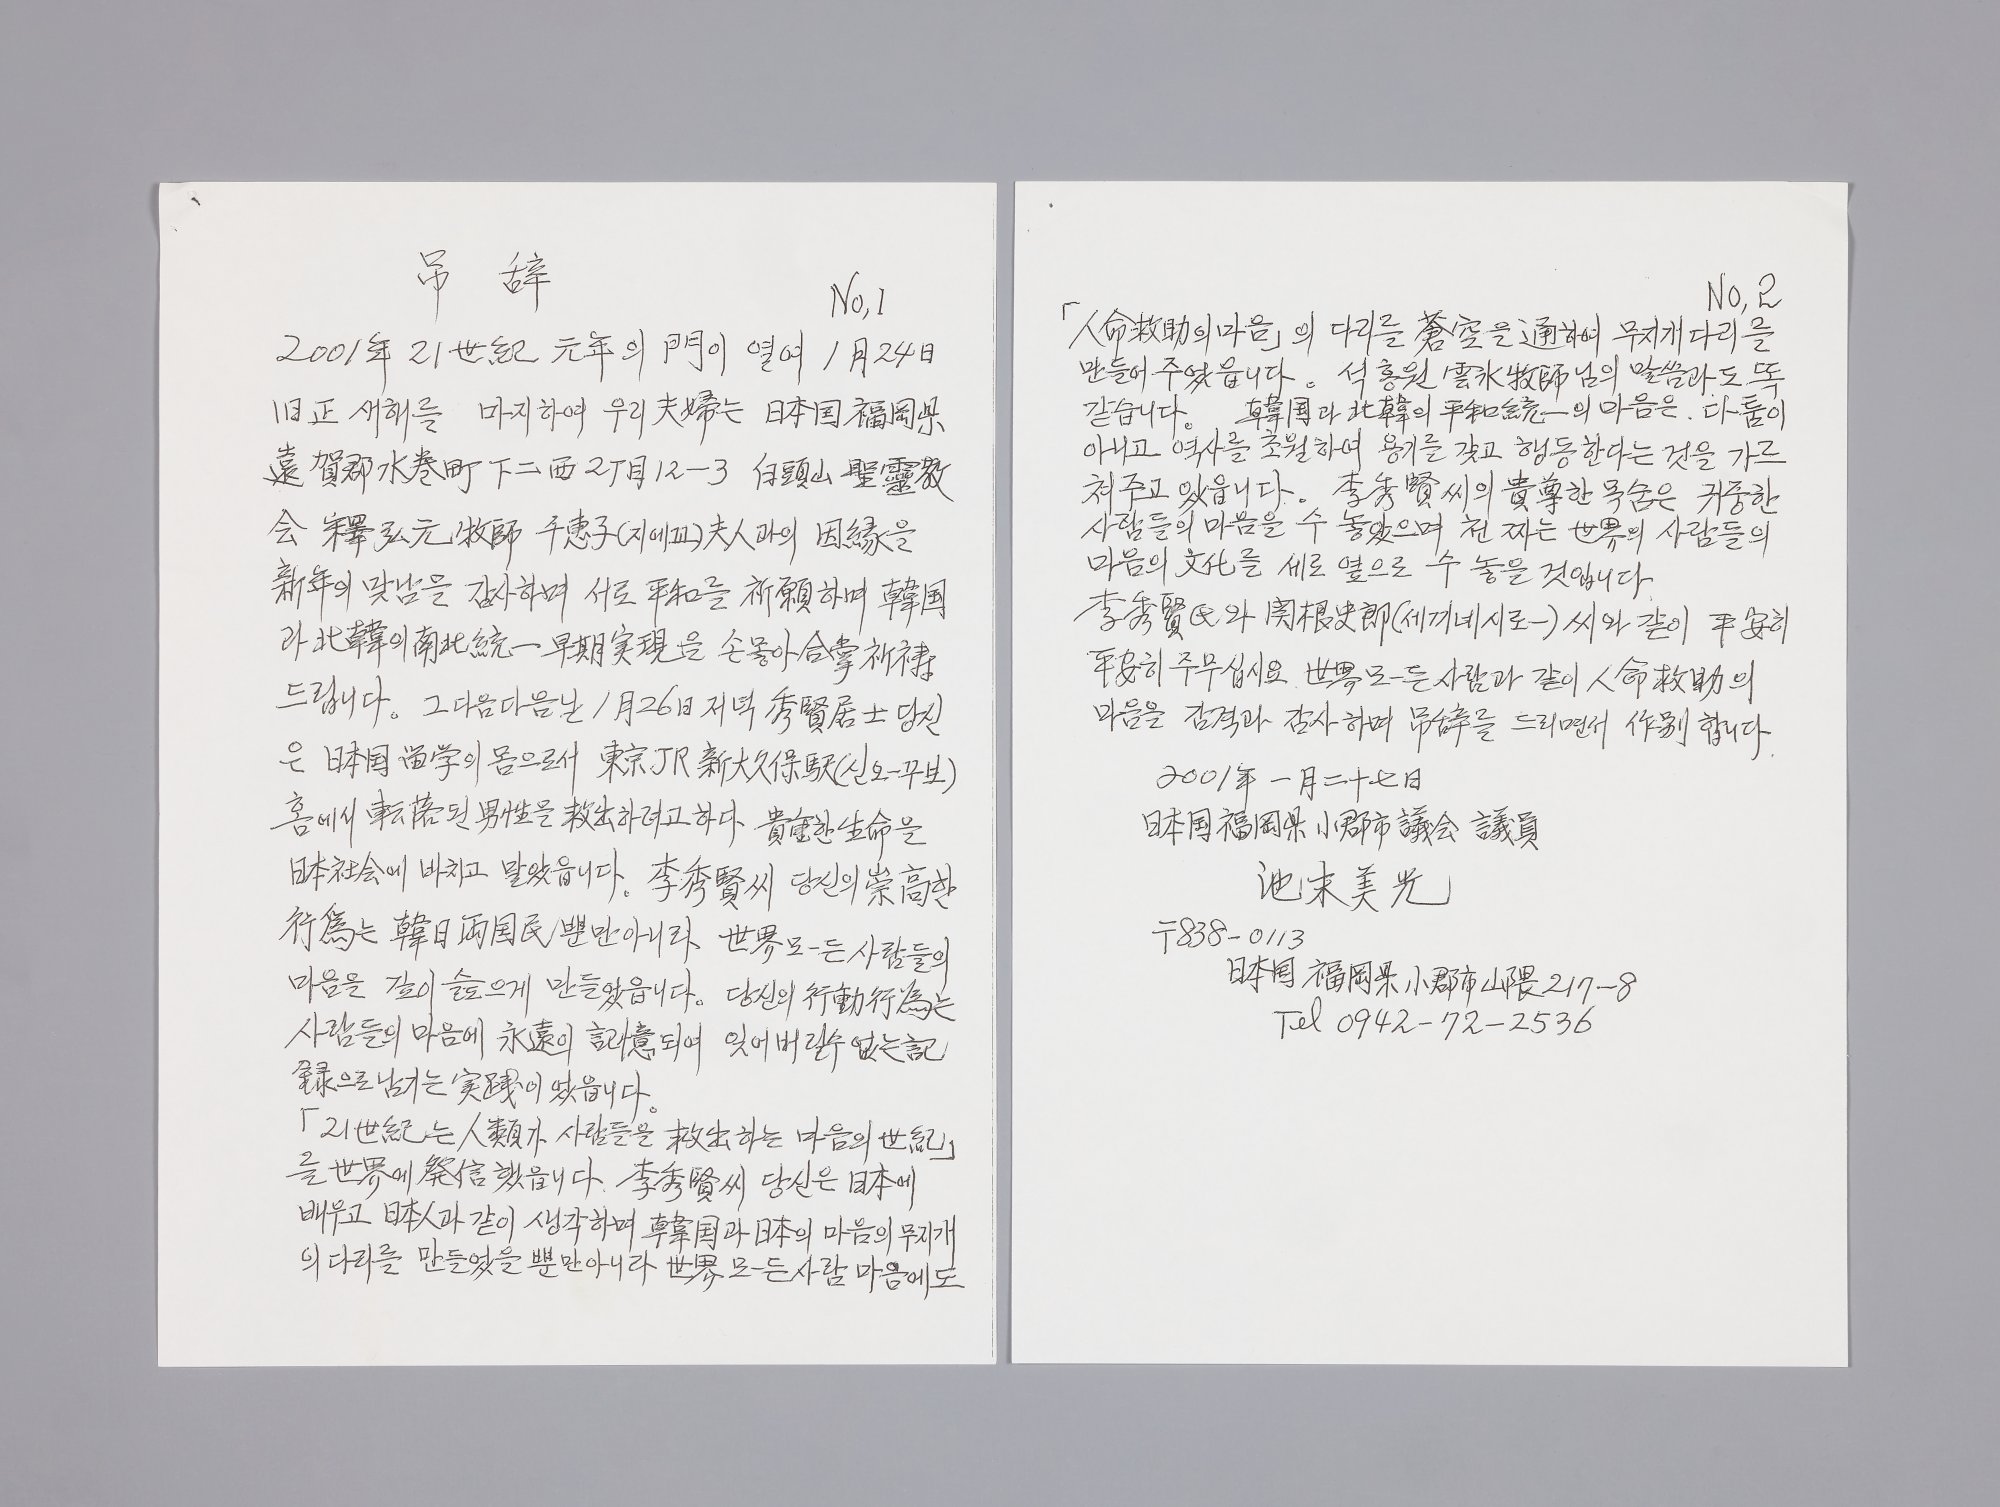 吊 辞
No, 1
2001年 21世紀 元年의 門이 열여 1月24日
旧正 새해를 마지하여 우리 夫婦는 日本国 福岡県
遠賀郡 水巻町 下二西 2丁目12-3 白頭山 聖靈教
会 釋弘元 牧師 千恵子(지에꼬)夫人과의 因縁을
新年의 맞남을 감사하며 서로 平和를 祈願하며 韓国
과 北韓의 南北統一 早期実現을 손몽아 合掌 祈禱
드립니다。 그다음다음난 1月26日 저녁 秀賢居士 당신
은 日本国 留学의 몸으로서 東京JR 新大久保駅(신오-꾸보)
홈에서 転落된 男性을 救出하려고하다 貴重한 生命을
日本社会에 바치고 말았읍니다。 李秀賢씨 당신의 崇高한
行為는 韓日両国民 뿐만아니라 世界 모-든 사람들의
마음을 깊이 슬프게 만들었읍니다。 당신의 行動行為는
사람들의 마음에 永遠의 記憶되여 잊어버릴수 없는 記
録으로 남기는 実践이 였읍니다。
「21世紀는 人類가 사람들을 救出하는 마음의 世紀」
를 世界에 発信했읍니다. 李秀賢씨 당신은 日本에
배우고 日本人과 같이 생각하며 韓国과 日本의 마음의 무지개
의 다리를 만들었을 뿐만아니라 世界 모-든 사람 마음에도
No, 2
「人命救助의 마음」의 다리를 蒼空을 通하여 무지개 다리를
만들어 주였읍니다。 석홍원 雲水牧師님의 말씀과도 똑
같습니다。 韓国과 北韓의 平和統一의 마음은. 다툼이
아니고 역사를 초월하여 용기를 갖고 행동한다는 것을 가르
쳐주고 있읍니다。 李秀賢씨의 貴尊한 목숨은 귀중한
사람들의 마음을 수 놓았으며 천 짜는 世界의 사람들의
마음의 文化를 세로 옆으로 수 놓을 것입니다.
李秀賢氏와 関根史郎(세끼네시로-)씨와 같이 平安히
平安히 주무십시요 世界 모-든 사람과 같이 人命救助의
마음을 감격과 감사하며 吊辞를 드리면서 作別 합니다.
2001年 一月二十七日
日本国 福岡県 小郡市 議会 議員
池末美光
〒838-0113
日本国 福岡県 小郡市 山隈 217-8
Tel 0942-72-2536